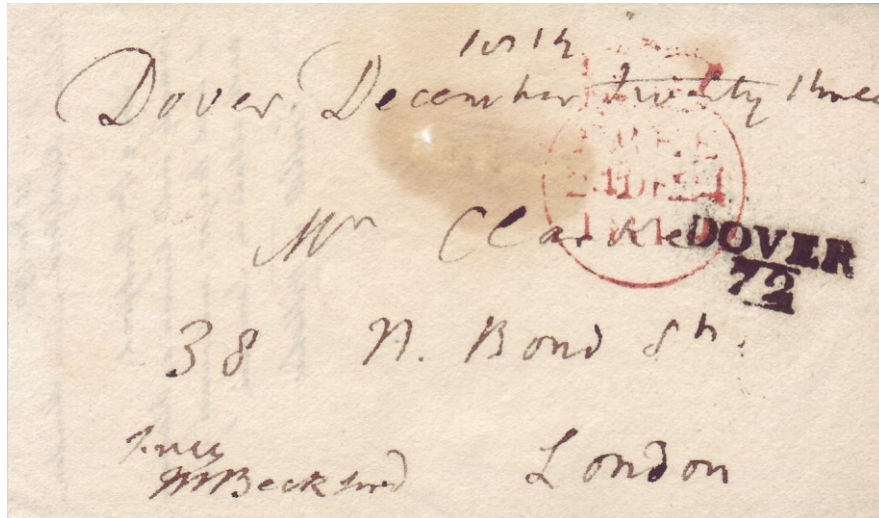 1819
Dover December twenty three
FREE
24 DE 24
1819
Mr Clarke
DOVER
72
38 N. Bond St.
free
London
WBeckford